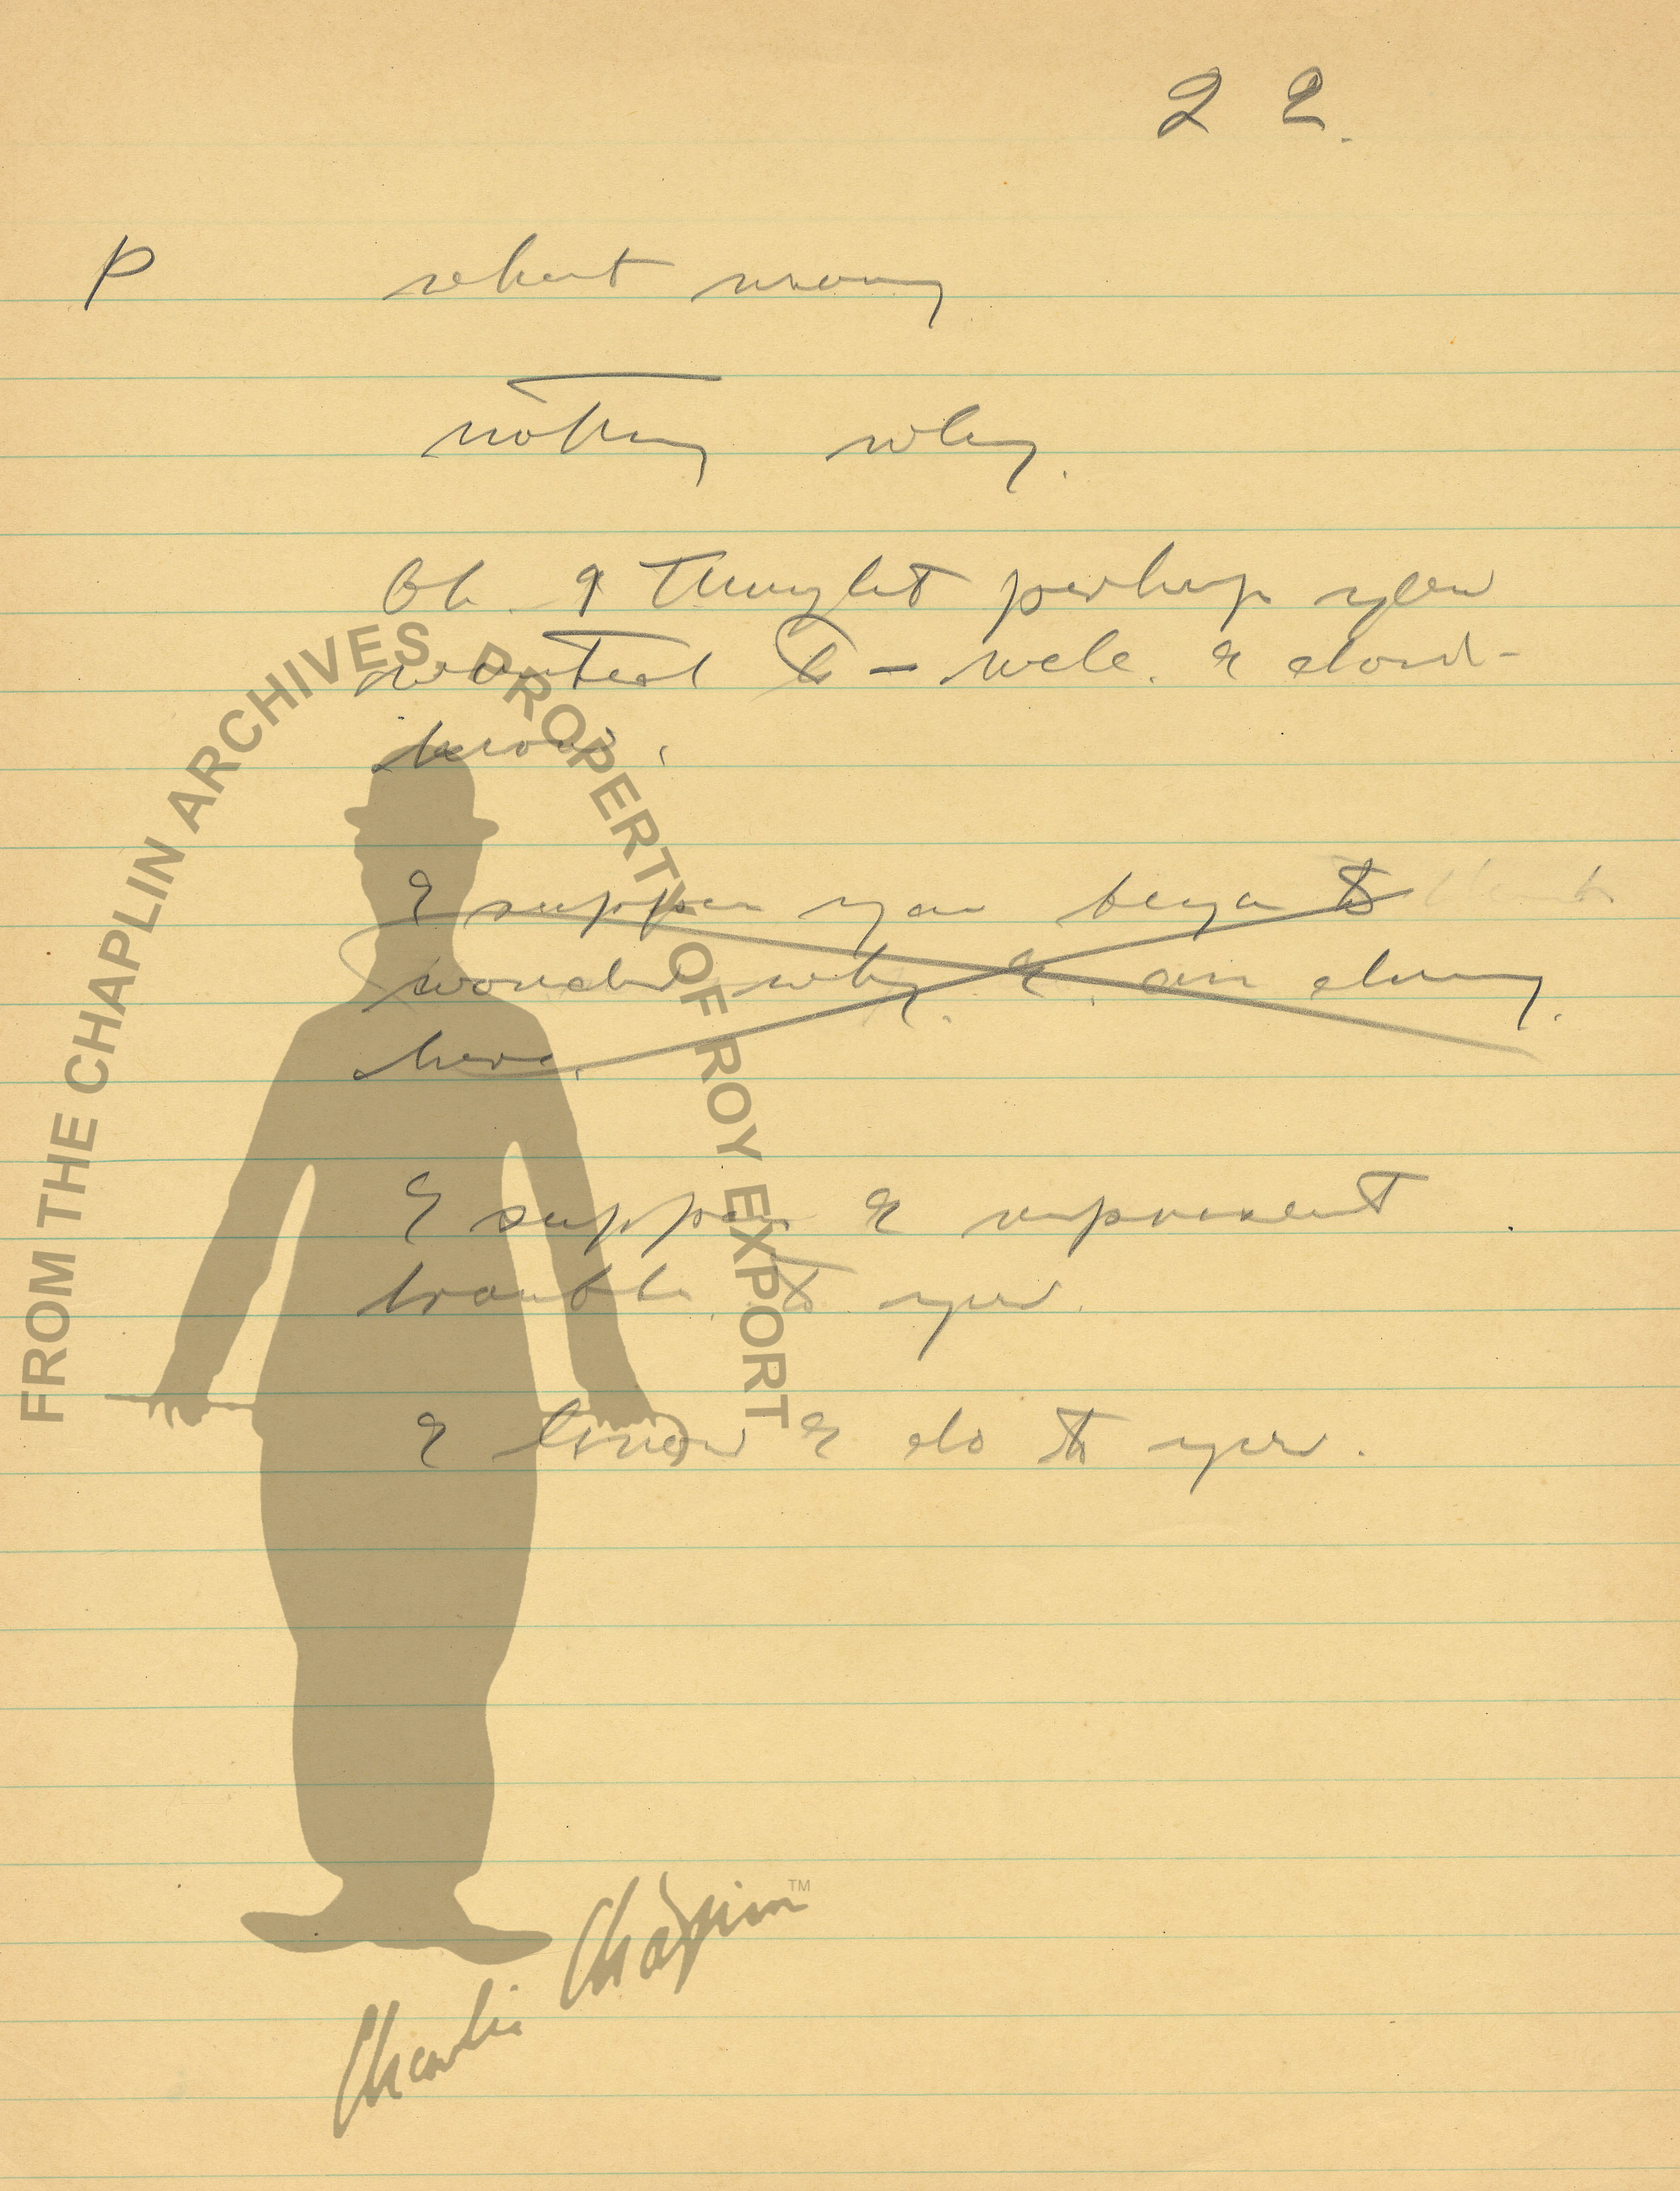 22.
P what wrong
nothing why.
Oh I thought perhap you
wanted to - well. I dont
know.
I suppose you began to
wonder why I am doing
here.
I suppose I represent
trouble to you.
I know I do to you.
FROM THE CHAPLIN ARCHIVES. PROPERTY OF ROY EXPORT
Charlie Chaplin TM